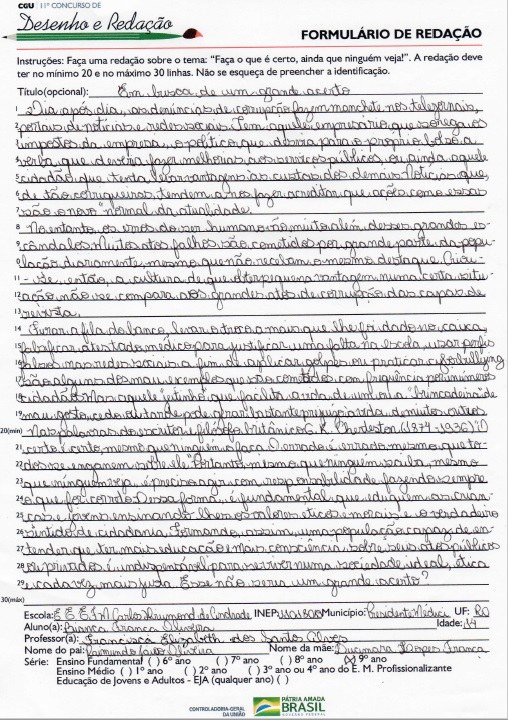 CGU | 11º CONCURSO DE
Desenho e Redação
FORMULÁRIO DE REDAÇÃO
Instruções: Faça uma redação sobre o tema: "Faça o que é certo, ainda que ninguém veja!". A redação deve
ter no mínimo 20 e no máximo 30 linhas. Não se esqueça de preencher a identificação.
Título(opcional): Em busca de um grande acerto
1 Dia após dia, as denúncias de corrupção fazem manchete nos telejornais,
portais de notícias e redes sociais. Tem aquele empresário que sonega os
impostos da empresa, o político que desvia para o próprio bolso a
verba que deveria fazer melhorias aos serviços públicos, ou ainda aquele
5 cidadão que tenta levar vantagens às custas dos demais. Notícias que,
de tão corriqueiras, tendem a nos fazer acreditar que ações como essas
7 são o novo "normal" da atualidade.
8 No entanto, os erros do ser humano vão muito além desses grandes es-
9 cândalos. Muitos atos falhos são cometidos por grande parte da popu-
lação diariamente, mesmo que não recebam o mesmo destaque. Criou-
11 -se, então, a cultura de que obter pequena vantagem numa certa situ-
12 ação não se compara aos grandes atos de corrupção das capas de
13 revista.
14 Furar a fila do banco, levar o troco a mais que lhe foi dado no caixa,
15 falsificar atestado médico para justificar uma falta na escola, usar perfis
16 falsos nas redes sociais a fim de aplicar golpes ou praticar cyberbullying
17 são alguns dos maus exemplos que são cometidos com frequência por inúmeros
18 cidadãos. Mas aquele "jeitinho" que facilita a vida de um ou a "brincadeira" de
19 mau gosto, cedo ou tarde pode gerar bastante prejuízo à vida de muitos outros.
20(min) Nas palavras do escritor e filósofo britânico G. K. Chesterton (1874-1936) "O
21 certo é certo, mesmo que ninguém o faça. O errado é errado, mesmo que to-
22 dos se enganem sobre ele". Portanto, mesmo que ninguém saiba, mesmo
23 que ninguém veja, é preciso agir com responsabilidade fazendo sempre
24 o que for correto. Dessa forma, é fundamental que eduquem as crian-
25 ças e jovens ensinando-lhes os valores éticos, morais e o verdadeiro
26 sentido de cidadania. Formando, assim, uma população capaz de en-
27 tender que ter mais educação e mais consciência sobre seus atos, públicos
28 ou privados, é indispensável para se viver numa sociedade ideal, ética
29 e cada vez mais justa. Esse não seria um grande acerto?
30(máx)
Escola: E.E.E.F.M Carlos Drummond de Andrade INEP: Município: Presidente Médici UF: RO
Aluno(a): Bianca França Oliveira Idade: 14
Professor(a): Francisca Elizabeth dos Santos Alves
Nome do pai: Oliveira Nome da mãe: Lopes França
Série: Ensino Fundamental ( ) 6º ano ( ) 7º ano ( ) 8º ano (X) 9º ano
Ensino Médio ( ) 1º ano ( ) 2º ano ( ) 3º ano ou 4º ano do E. M. Profissionalizante
Educação de Jovens e Adultos - EJA (qualquer ano) ( )
CONTROLADORIA-GERAL
DA UNIÃO
PÁTRIA AMADA
BRASIL
GOVERNO FEDERAL